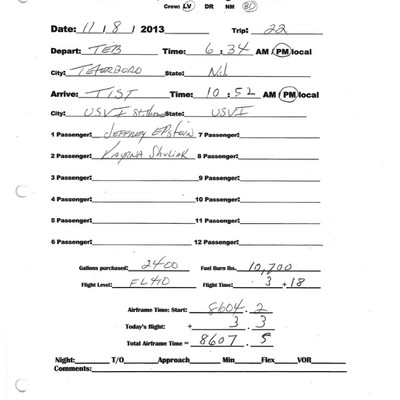 Crew: LV DR NM BD
Date: 11 / 8 / 2013 Trip: 22
Depart: TEB Time: 6:34 AM / PM local
City: TETERBORO State: NJ
Arrive: TIST Time: 10:52 AM / PM local
City: USVI St.Thomas State: USVI
1 Passenger: JEFFREY EPSTEIN 7 Passenger:
2 Passenger: KARYNA SHULIAK 8 Passenger:
3 Passenger: 9 Passenger:
4 Passenger: 10 Passenger:
5 Passenger: 11 Passenger:
6 Passenger: 12 Passenger:
Gallons purchased: 2400 Fuel Burn lbs. 10,700
Flight Level: FL410 Flight Time: 3 + 18
Airframe Time: Start: 8604 . 2
Today's flight: + 3 . 3
Total Airframe Time = 8607 . 5
Night: T/O Approach Min Flex VOR
Comments: